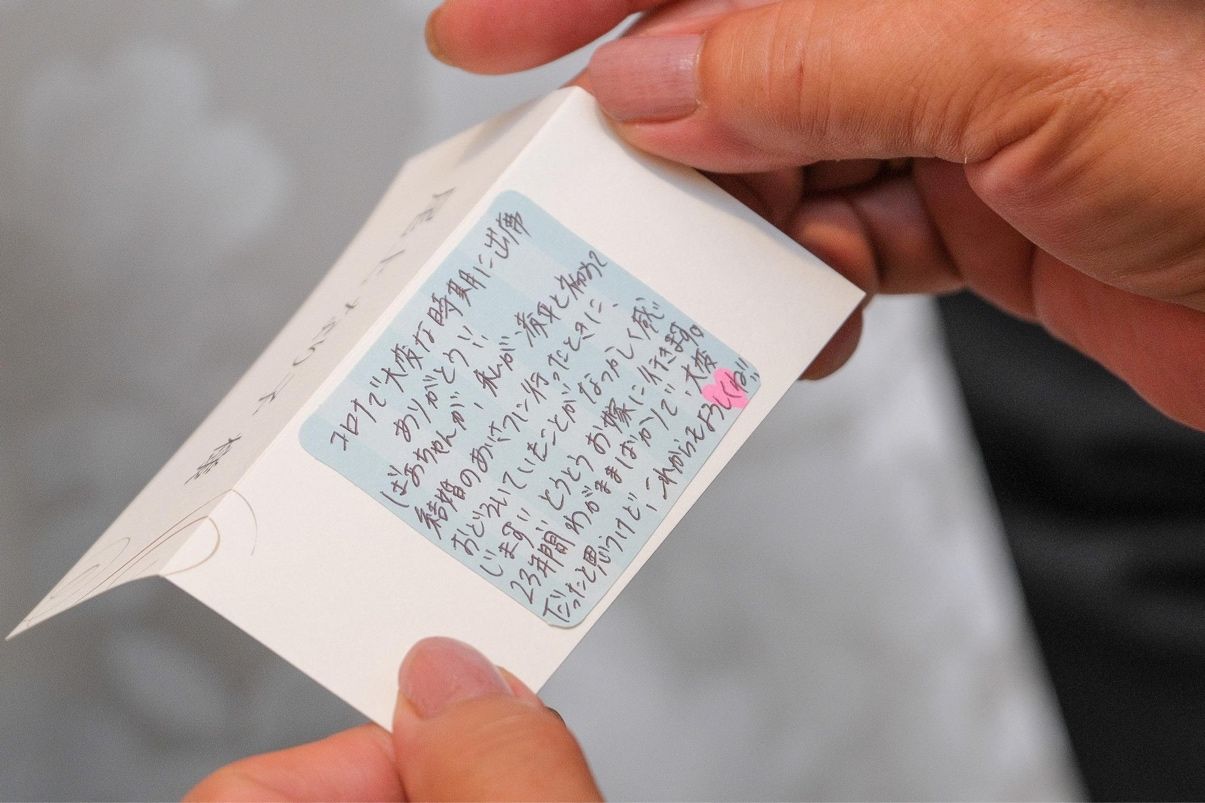 コロナで大変な時期に出席
ありがとう!!
ばあちゃんが、私が 寿斗と初めて
結婚のあいさつに行ったときに、
おどろいていたことがなつかしく感
じます!! とうとうお嫁に行きます。
23年間わがままばかりで、大変
だったと思うけど、これからもよろしくね!!
様